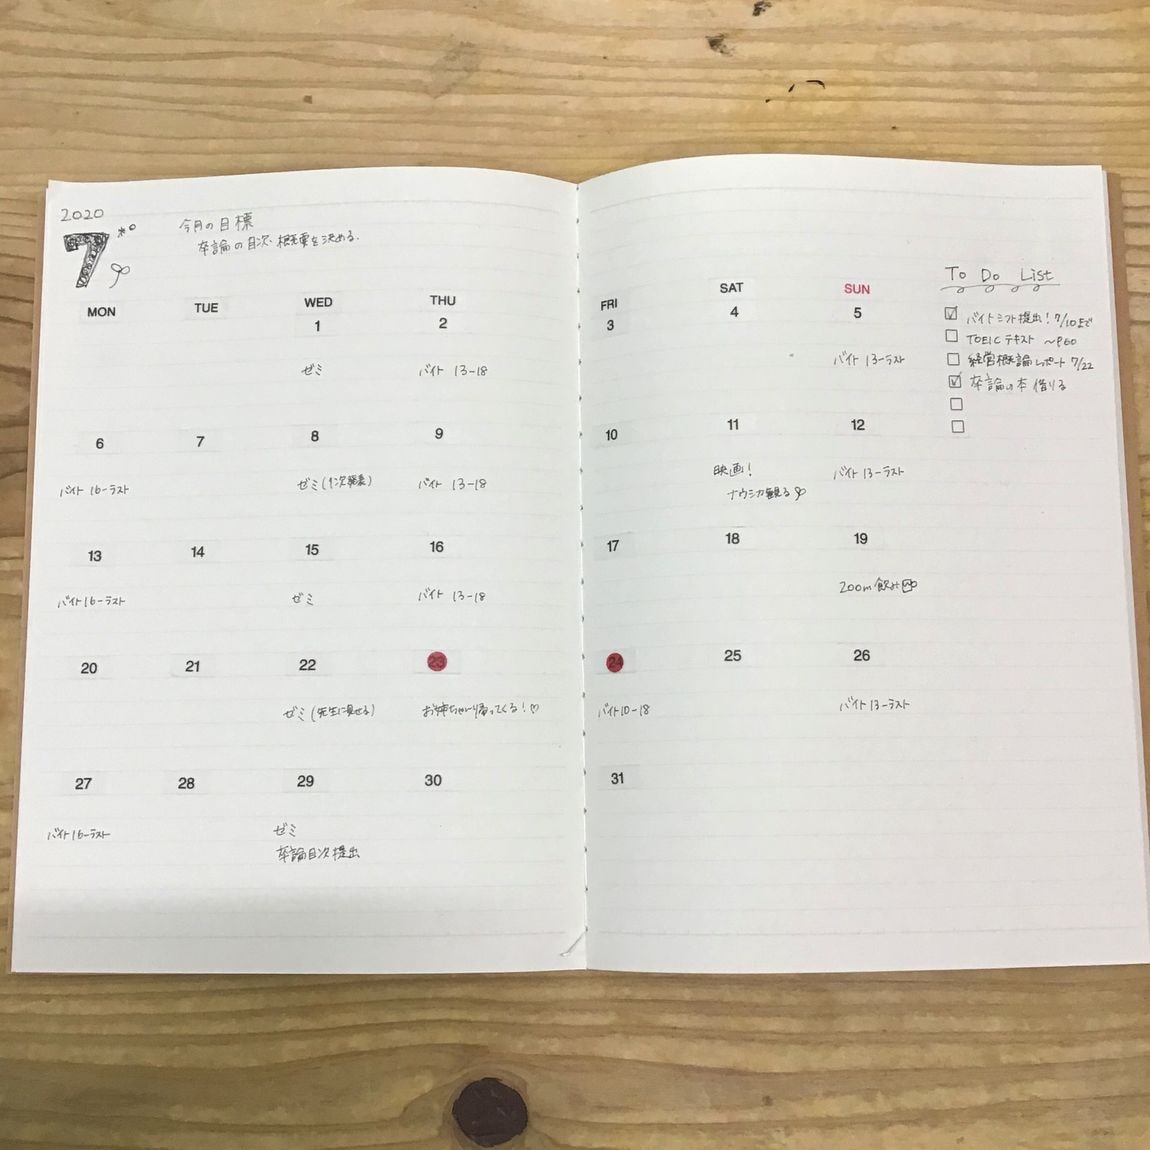 2020
7
今月の目標
卒論の目次・概要を決める.
MON TUE WED THU FRI SAT SUN
1 2 3 4 5
ゼミ バイト 13-18 バイト 13-ラスト
6 7 8 9 10 11 12
バイト 16-ラスト ゼミ(1次発表) バイト 13-18 映画! バイト 13-ラスト
ナウシカ観る
13 14 15 16 17 18 19
バイト 16-ラスト ゼミ バイト 13-18 zoom飲み
20 21 22 23 24 25 26
ゼミ(先生に見せる) お姉ちゃん帰ってくる!♡ バイト10-18 バイト 13-ラスト
27 28 29 30 31
バイト 16-ラスト ゼミ
卒論目次提出
To Do List
☑ バイトシフト提出! 7/10まで
☐ TOEIC テキスト ~P60
☐ 経営概論レポート 7/22
☑ 卒論の本 借りる